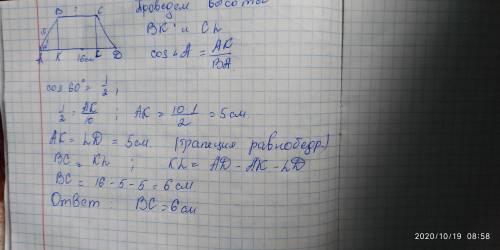 Проведем высоты
BK и CL
cos∠A = AK/BA
B C
A K 16см L D
cos 60° = 1/2;
1/2 = AK/10 ; AK = 10·1/2 = 5 см.
AK = LD = 5 см. (трапеция равнобедр.)
BC = KL ; KL = AD - AK - LD
BC = 16 - 5 - 5 = 6 см
Ответ BC = 6 см
2020/10/19 08:58